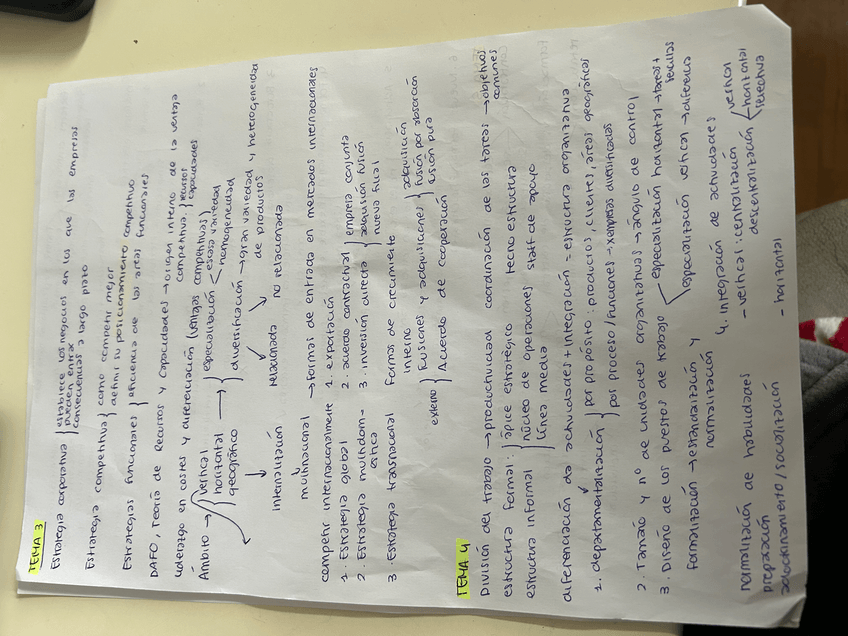 TEMA 3
Estrategia corporativa } establece los negocios en los que las empresas
pueden entrar
consecuencias a largo plazo
Estrategia competitiva } como competir mejor
definir su posicionamiento competitivo
Estrategias funcionales } eficiencia de las áreas funcionales
DAFO, Teoría de Recursos y Capacidades → origen interno de la ventaja
competitiva } recursos
capacidades
Liderazgo en costes y diferenciación (ventajas competitivas)
Ámbito → vertical
horizontal
geográfico
especialización < escasa variedad
homogeneidad
diversificación → gran variedad y heterogeneidad
de productos
relacionada no relacionada
internalización
multinacional → formas de entrada en mercados internacionales
competir internacionalmente
1. Estrategia global
2. Estrategia multidom-
estica
3. Estrategia transnacional
1. exportación
2. acuerdo contractual
3. inversión directa } empresa conjunta
adquisición fusión
nueva filial
Formas de crecimiento
interno
externo } Fusiones y adquisiciones } adquisición
fusión por absorción
fusión pura
Acuerdo de cooperación
TEMA 4
División del trabajo → productividad coordinación de las tareas → objetivos
comunes
estructura formal: } ápice estratégico tecno estructura
estructura informal núcleo de operaciones staff de apoyo
línea media
diferenciación de actividades + integración = estructura organizativa
1. departamentalización } por propósito: productos, clientes, áreas geográficas
por proceso/funciones → empresas diversificadas
2. Tamaño y nº de unidades organizativas → ángulo de control
3. Diseño de los puestos de trabajo < especialización horizontal → tareas +
sencillas
especialización vertical → diferencia
formalización → estandarización y
normalización
normalización de habilidades
preparación
adoctrinamiento/socialización
4. integración de actividades
- vertical: centralización
descentralización < vertical
horizontal
selectiva
- horizontal